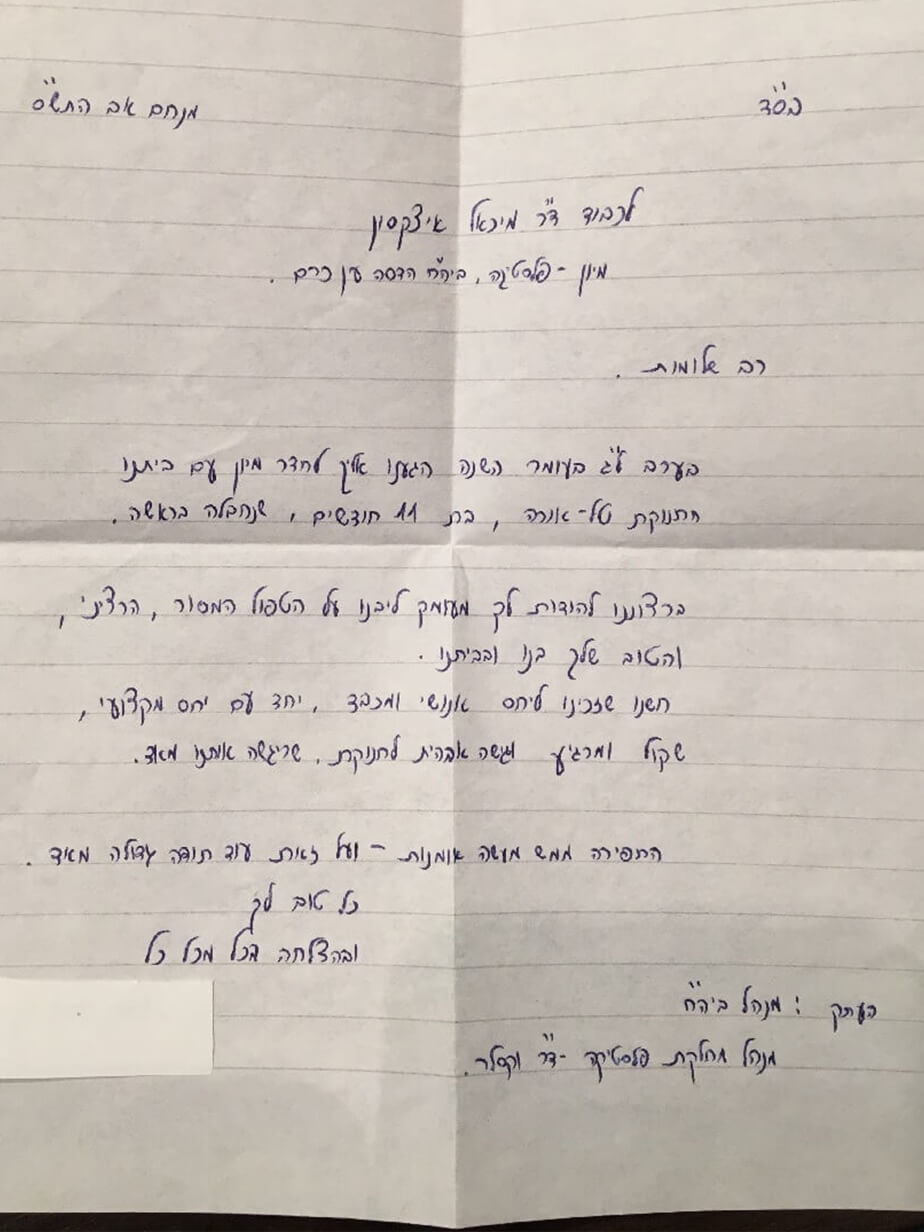 בס"ד
מנחם אב התש"ס
לכבוד ד"ר מיכאל איצקסון
מיון - פלסטיקה, ביה"ח הדסה עין כרם.
רב שלומות.
בערב ל"ג בעומר השנה הגענו אליך לחדר מיון עם ביתנו
התנוקת טל-אורה, בת 11 חודשים, שנחבלה בראשה.
ברצוננו להודות לך מעומק ליבנו על הטפול המסור, הרציני,
והטוב שלך בנו ובביתנו.
חשנו שזכינו ליחס אנושי ומכבד, יחד עם יחס מקצועי,
שקול ומרגיע וגשה אבהית לתנוקת, שריגשה אותנו מאד.
התפירה ממש מעשה אומנות - ועל זאת עוד תודה גדולה מאוד.
כל טוב לך
ובהצלחה בכל מכל כל
העתק: מנהל ביה"ח
מנהל מחלקת פלסטיקה - ד"ר וקסלר.